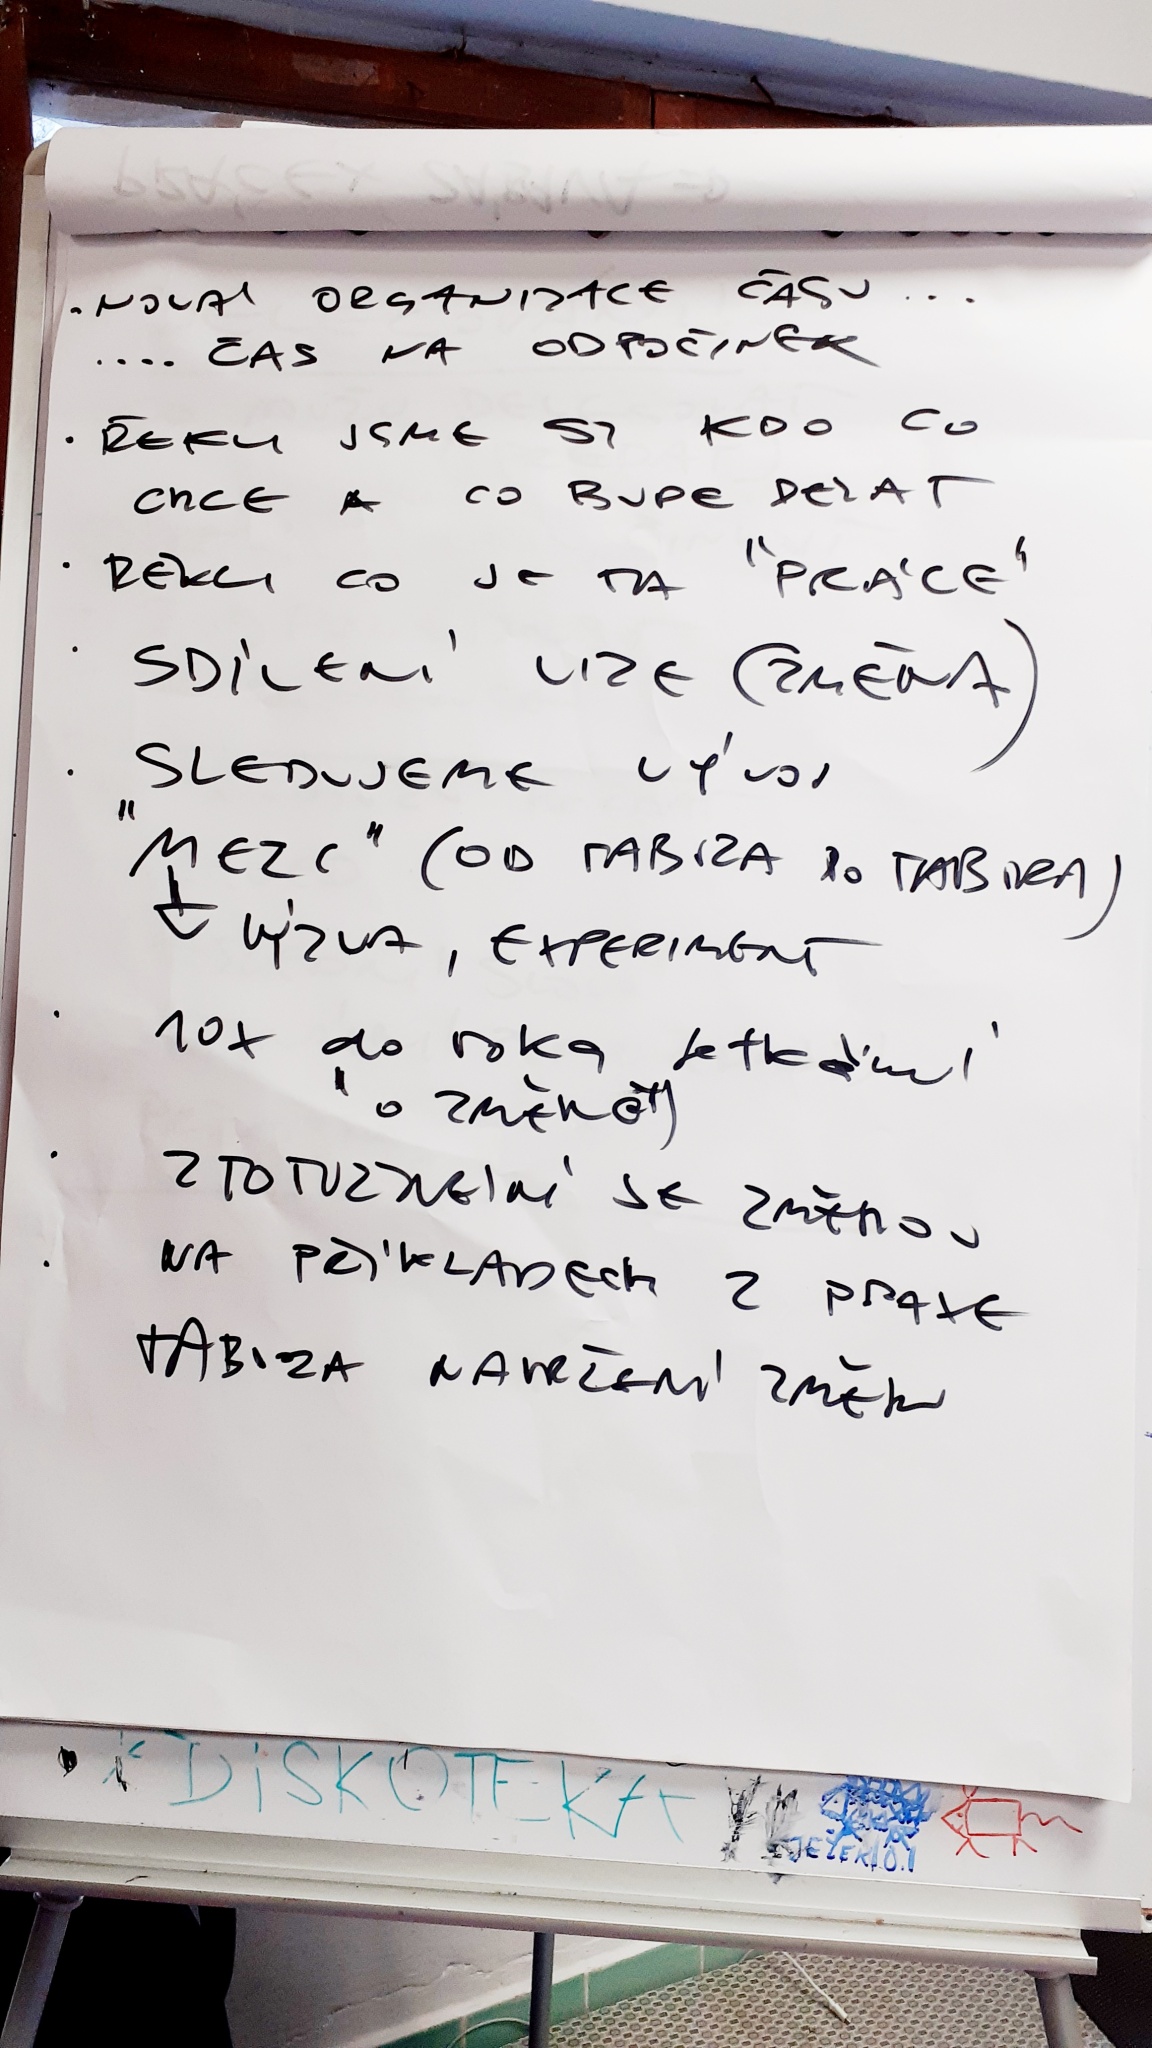 · NOVÁ ORGANIZACE ČASU ...
.... ČAS NA ODPOČINEK
· ŘEKLI JSME SI KDO CO
CHCE A CO BUDE DĚLAT
· ŘEKLI CO JE TA "PRÁCE"
· SDÍLENÍ VIZE (ZMĚNA)
· SLEDUJEME VÝVOJ
"MEZI" (OD TÁBORA DO TÁBORA)
↓ VÝZVA, EXPERIMENT
· 10X do roka setkání
"o ZMĚNĚ")
· ZTOTOŽNĚNÍ SE ZMĚNOU
· NA PŘÍKLADECH Z PRAXE
TÁBORA NAVRŽENÍ ZMĚN
• DiSKOTEKA
JEŽEK1.0.1